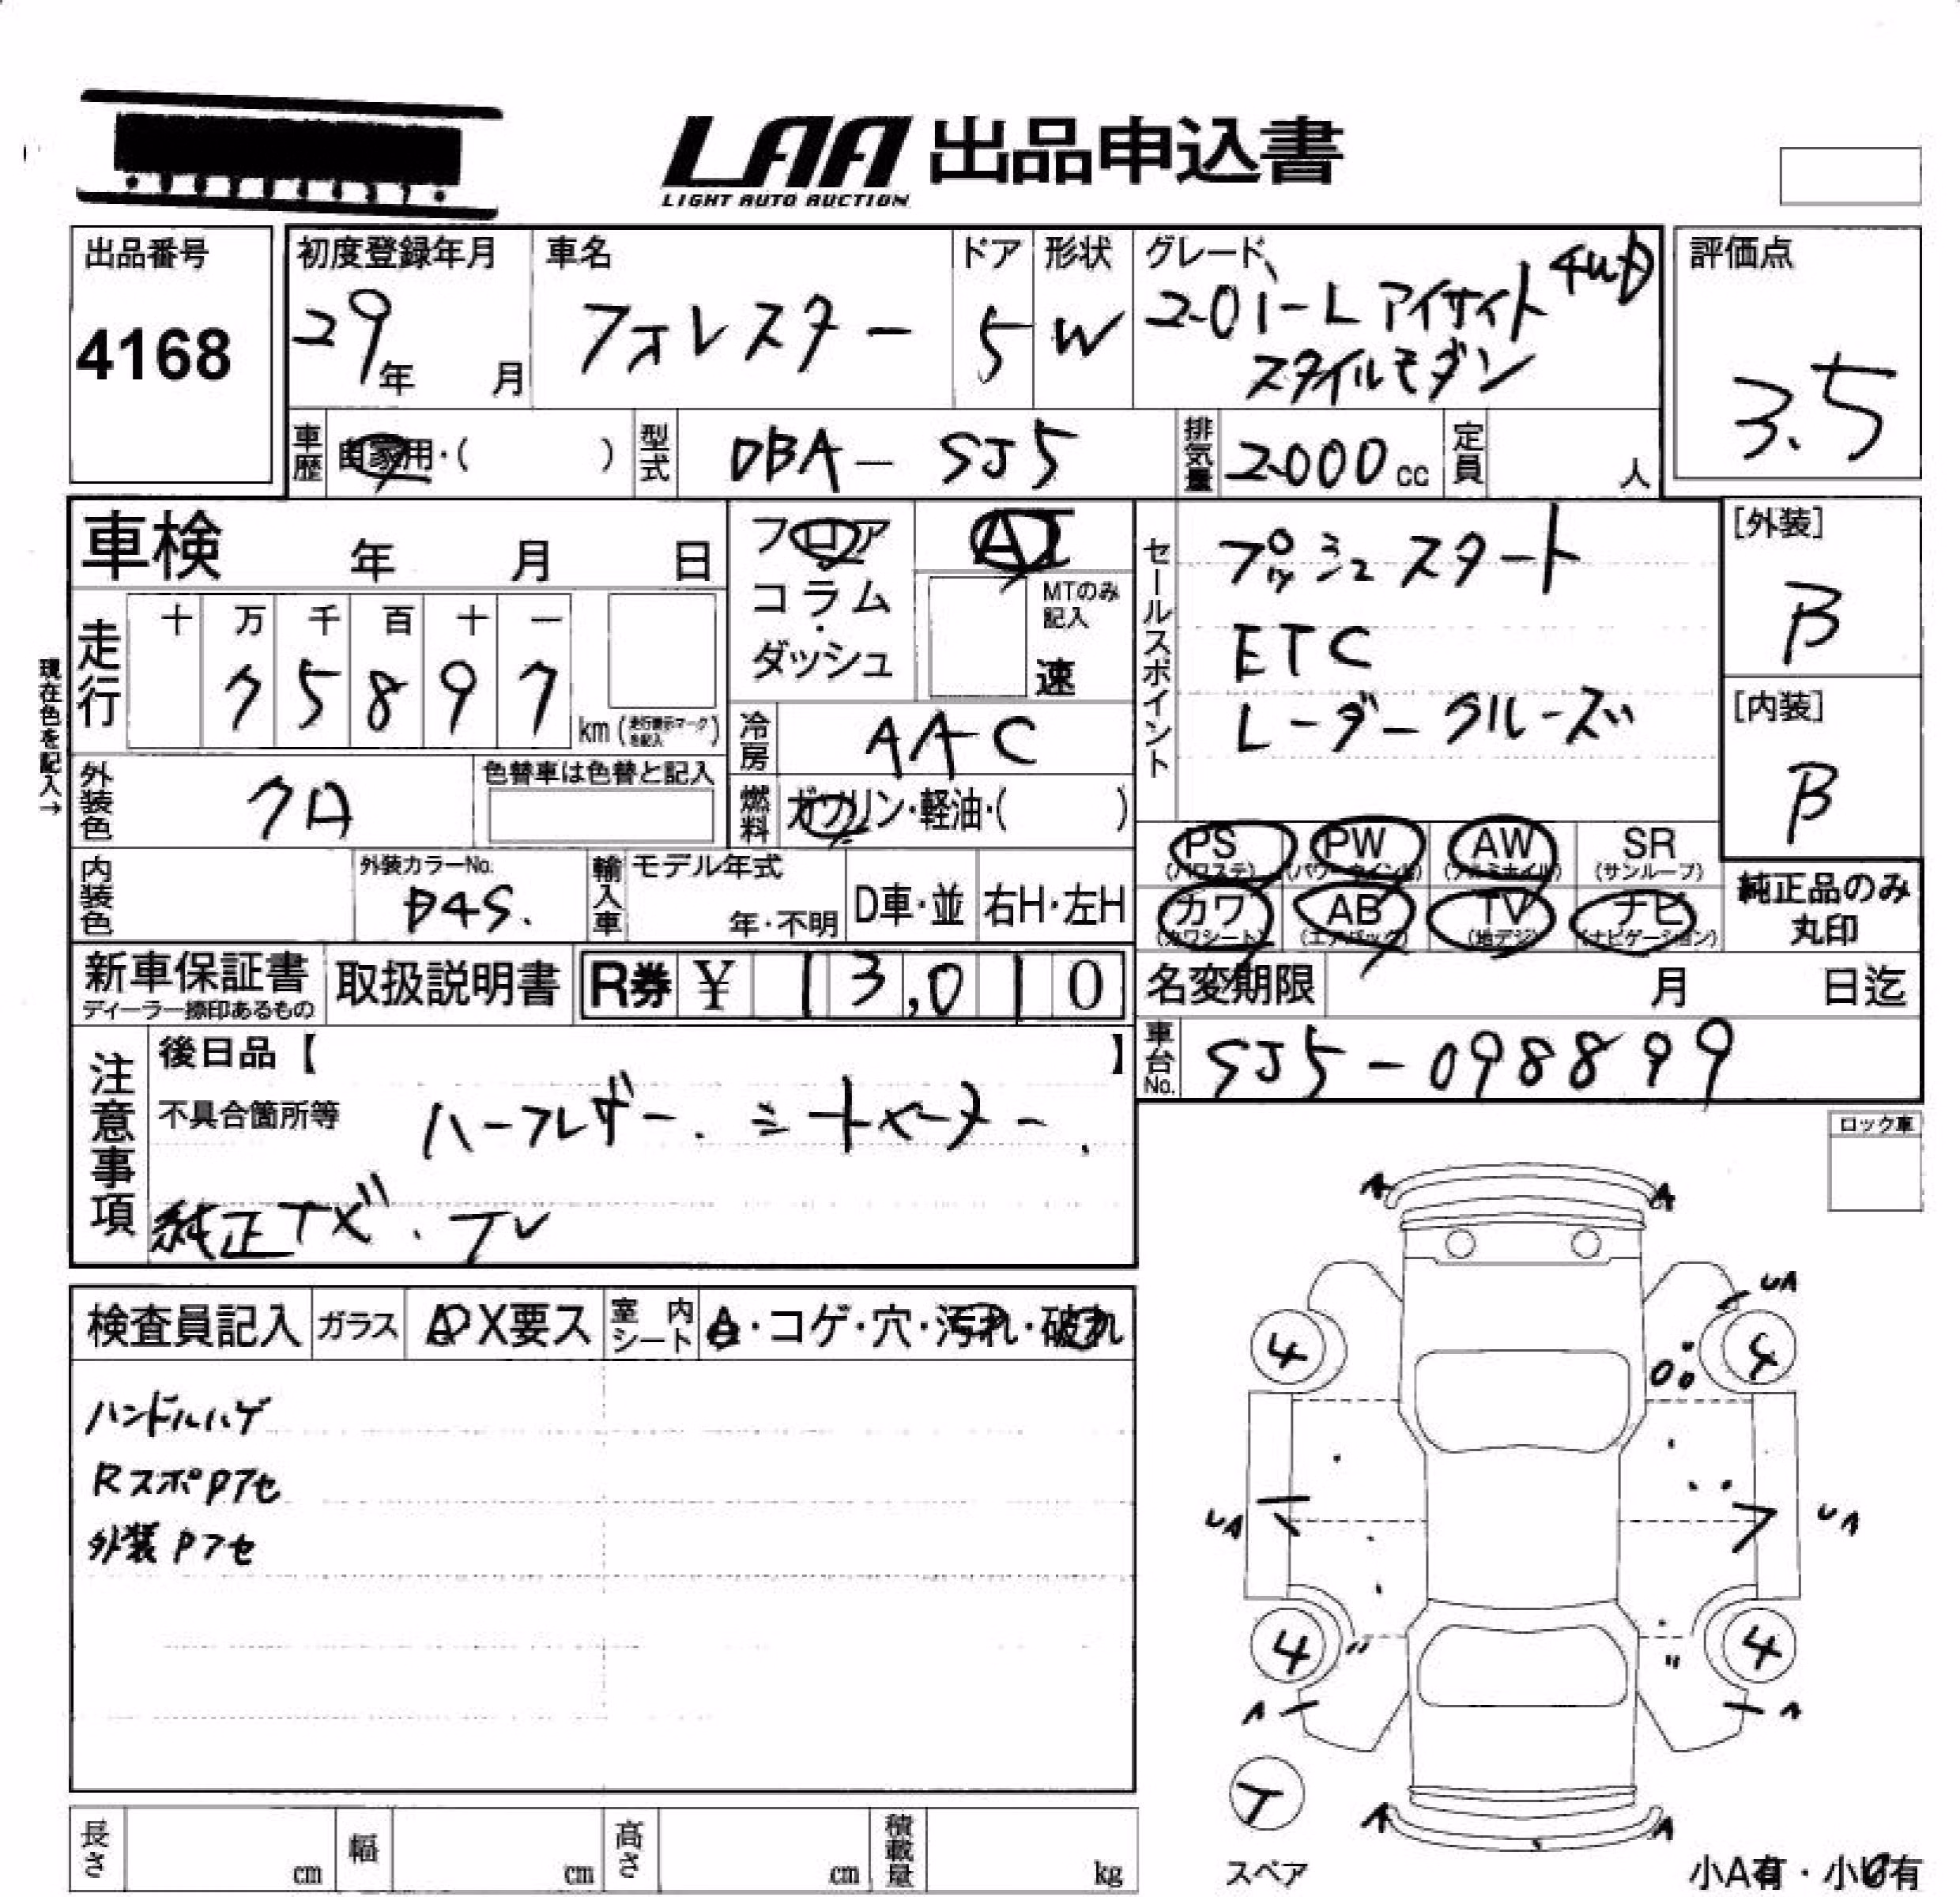 LAA 出品申込書
LIGHT AUTO AUCTION
出品番号
4168
初度登録年月
29年 月
車名
フォレスター
ドア
5
形状
W
グレード
2.0i-L アイサイト 4WD
スタイルモダン
評価点
3.5
車歴 自家用・( )
型式 DBA-SJ5
排気量 2000cc
定員 人
車検 年 月 日
フロア
コラム
・
ダッシュ
AT
MTのみ
記入
速
セールスポイント
プッシュスタート
ETC
レーダークルーズ
[外装]
B
[内装]
B
現在色を記入→
走行
十 万 千 百 十 一
7 5 8 9 7
km(走行表示マークを記入)
冷房 AAC
外装色 クロ
色替車は色替と記入
燃料 ガソリン・軽油・( )
PS (パワステ)
PW (パワーウインド)
AW (アルミホイル)
SR (サンルーフ)
カワ (カワシート)
AB (エアバック)
TV (地デジ)
ナビ (ナビゲーション)
純正品のみ
丸印
内装色
外装カラーNo.
D4S.
輸入車
モデル年式
年・不明
D車・並
右H・左H
新車保証書
ディーラー捺印あるもの
取扱説明書
R券 ¥ 13,010
名変期限 月 日迄
車台No. SJ5-098899
注意事項
後日品【 】
不具合箇所等
ハーフレザー. シートヒーター.
純正ナビ. TV
ロック車
検査員記入
ガラス
X要ス
室内シート
・コゲ・穴・汚れ・破れ
ハンドルハゲ
RスポPアセ
外装Pアセ
A A
UA
4 4
UA UA
4 4
A A
T
スペア
A A
小A有・小U有
長さ cm
幅 cm
高さ cm
積載量 kg